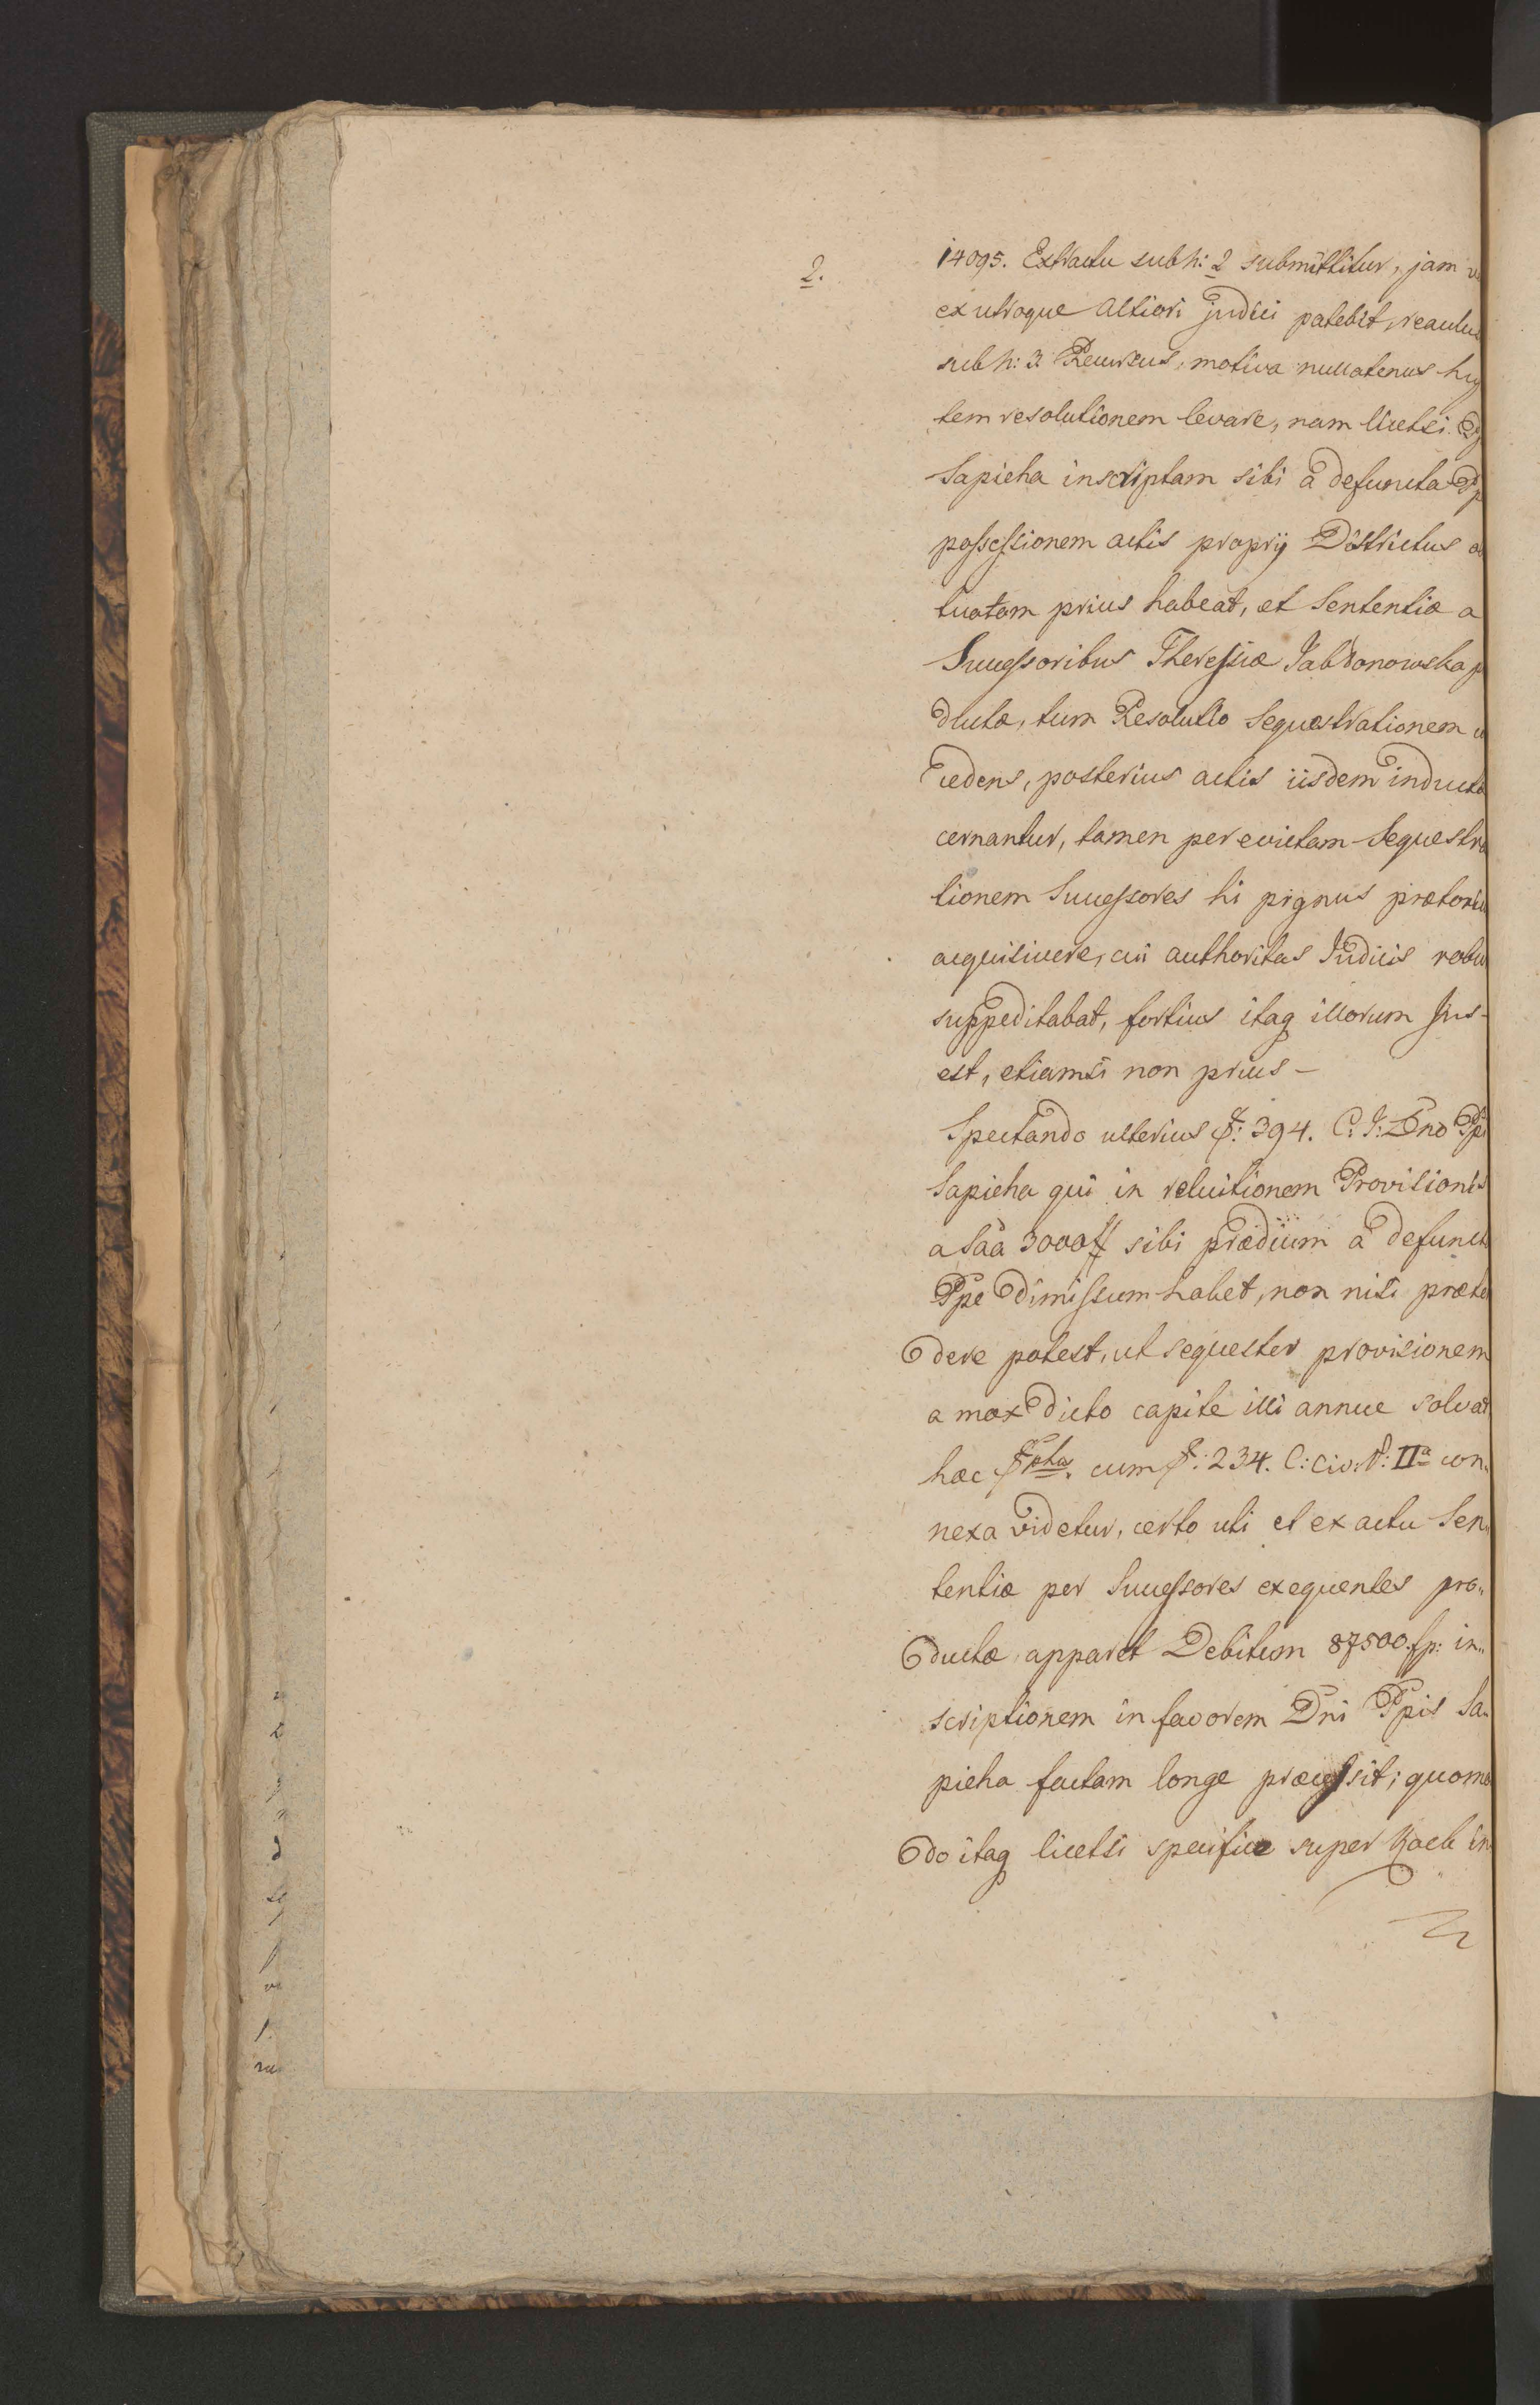 2.
14095. Extractu sub n: 2 submittitur, jam
ex utroque altiori judici patebit,
sub n: 3. Recursus, motiva nullatenus
tem resolutionem levare, nam licetsi
Sapieha inscriptam sibi a defuncta
possessionem actis proprii Districtus
tuatam prius habeat, et Sententiæ a
Successoribus Theressiæ Jabłonowska
ductæ, tum Resolutio Sequestrationem
cedens, posterius actis iisdem inductæ
cernantur, tamen per evictam Sequestra
tionem Successores hi pignus prætoriu
acquisivere, cui authoritas Judicis robu
suppeditabat, fortius itaq illorum Jus
est, etiamsi non prius –
Spectando ulterius §: 394. C: J: Dno Ppi
Sapieha qui in reluitionem Provisionis
a Saa 3000 # sibi prædium a defunct
Ppe dimissum habet, non nisi præten
dere potest, ut sequester provisionem
a mox dicto capite illi annue solvat
hæc §pha. cum §: 234. C: Civ: P: IIa con„
nexa videtur, certo uti et ex actu Sen„
tentiæ per Successores exequentes pro„
ductæ apparet Debitum 87500. fp: in„
scriptionem in favorem Dni Ppis Sa„
pieha factam longe præcessit; quomo
do itaq licetsi specifice super in